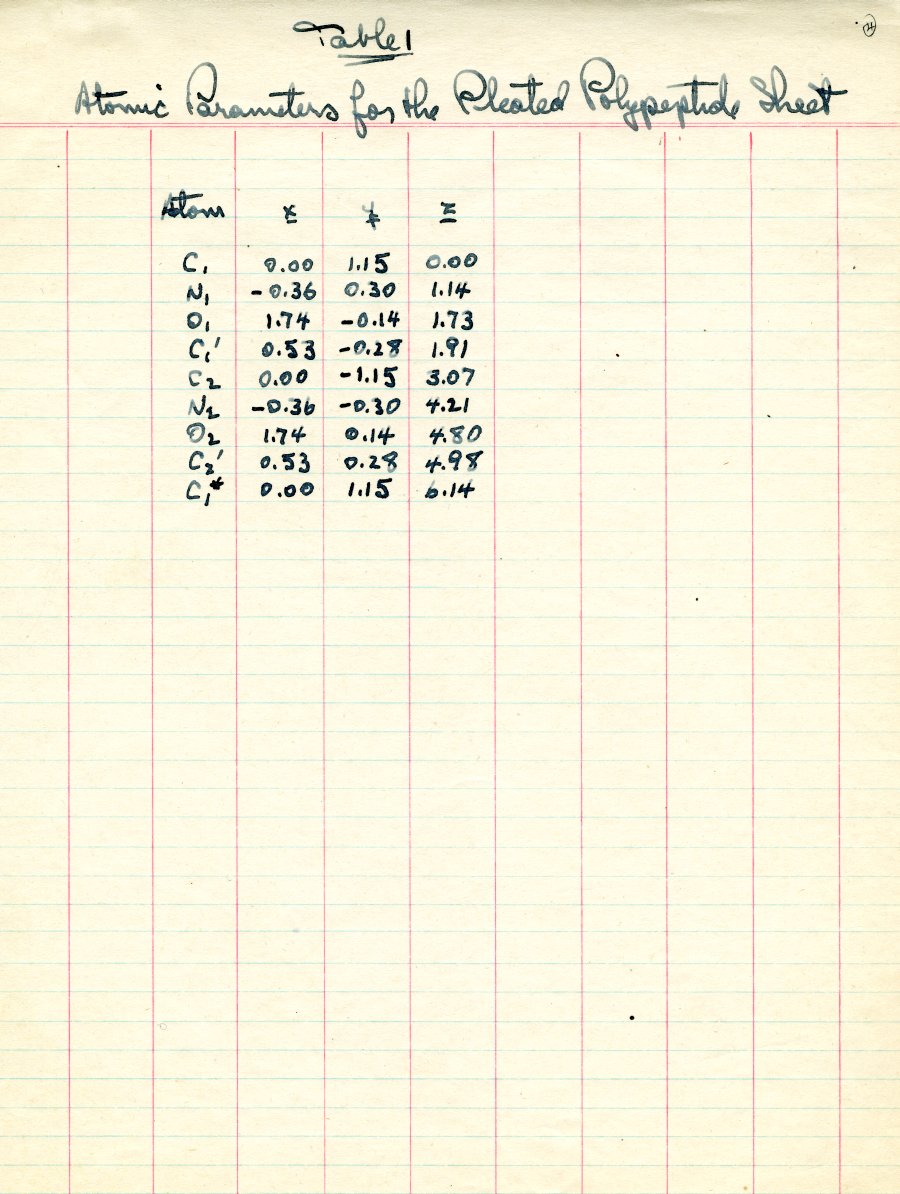 Table 1
Atomic Parameters for the Pleated Polypeptide Sheet
Atom x y z
C₁ 0.00 1.15 0.00
N₁ -0.36 0.30 1.14
O₁ 1.74 -0.14 1.73
C₁' 0.53 -0.28 1.91
C₂ 0.00 -1.15 3.07
N₂ -0.36 -0.30 4.21
O₂ 1.74 0.14 4.80
C₂' 0.53 0.28 4.98
C₁* 0.00 1.15 6.14